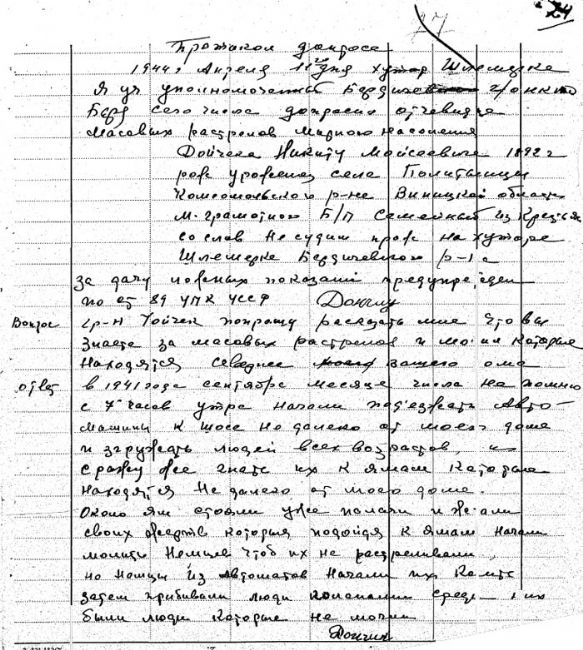 24
27
Протокол допроса
1944 г Апреля 11 дня хутор Шлемарка
Я уч уполномоченый Бердичевского г/о НКГБ
Берд сего числа допросил отчевидца
массовых растрелов мирного населения
Дойчека Никиту Мойсеевича 1892 г
рож уроженец села
Комсомольского р-на Виницкой области
м. грамотного Б/П семейный из Крестьян
со слов не судим прож на хуторе
Шлемарке Бердичевского р-на
за дачу ложных показаний предупрежден
по ст 89 УПК УССР
Вопрос гр-н Дойчек попрошу расказать мне что вы
знаете за масовых растрелов и могил которые
находятся вашего дома
ответ в 1941 года сентябре месяце числа не помню
с 7 часов утра начали подъезжать авто-
машины к шосе не далеко от моего дома
и згружать людей всех возрастов, и
сражу же гнать их к ямам которые
находятся не далеко от моего доме.
Около ям стояли уже палачи и ждали
своих жертв которые подойдя к ямам начали
молить Немцев чтоб их не растреливали,
но немцы из автоматов начали их
затем прибивали люди среди них
были люди которые не могли